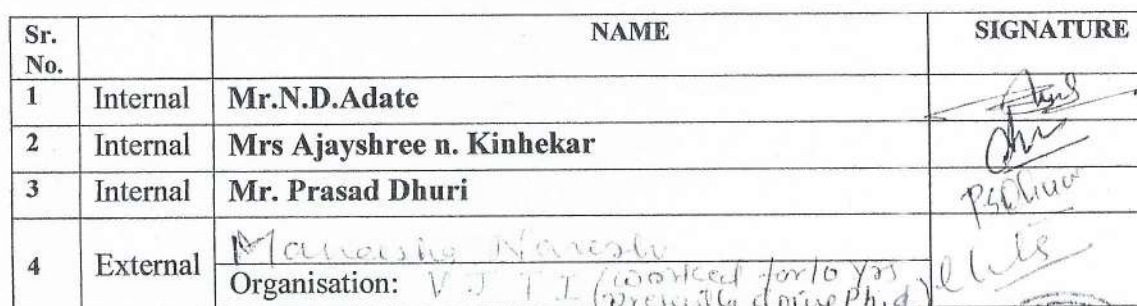 Sr. No. NAME SIGNATURE
1 Internal Mr.N.D.Adate
2 Internal Mrs Ajayshree n. Kinhekar
3 Internal Mr. Prasad Dhuri PSDhuri
4 External Naresh
Organisation: V J T I (worked for 10 yrs
Ph.d)